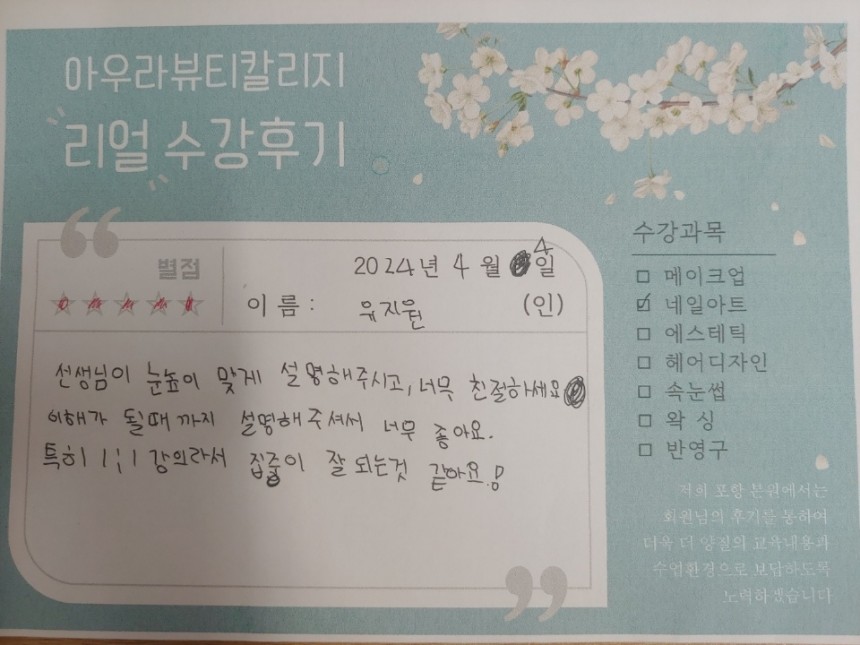 아우라뷰티칼리지
리얼 수강후기
별점
2024년 4월 4일
이름: 유지원 (인)
선생님이 눈높이 맞게 설명해주시고, 너무 친절하세요
이해가 될때까지 설명해주셔서 너무 좋아요.
특히 1:1 강의라서 집중이 잘 되는것 같아요!
수강과목
메이크업
네일아트
에스테틱
헤어디자인
속눈썹
왁싱
반영구
저희 포항 본원에서는
회원님의 후기를 통하여
더욱 더 양질의 교육내용과
수업환경으로 보답하도록
노력하겠습니다